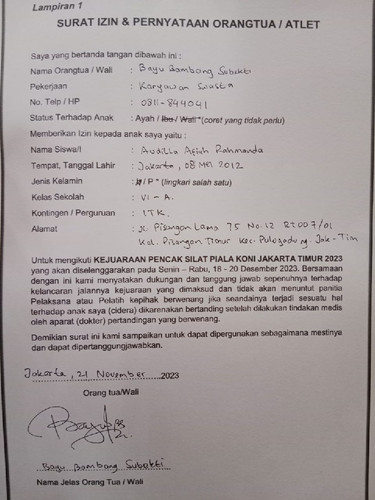 Lampiran 1
SURAT IZIN & PERNYATAAN ORANGTUA / ATLET
Saya yang bertanda tangan dibawah ini :
Nama Orangtua / Wali : Bayu Bambang Subakti
Pekerjaan : Karyawan Swasta
No. Telp / HP : 0811-844041
Status Terhadap Anak : Ayah / Ibu / Wali *(coret yang tidak perlu)
Memberikan Izin kepada anak saya yaitu :
Nama Siswa/i : Audilla Afiah Rahmanda
Tempat, Tanggal Lahir : Jakarta, 08 Mei 2012
Jenis Kelamin : L / P * (lingkari salah satu)
Kelas Sekolah : VI - A.
Kontingen / Perguruan : ITK.
Alamat : Jl. Pisangan Lama 75 No.12 RT007/01
Kel. Pisangan Timur Kec. Pulogadung Jak-Tim
Untuk mengikuti KEJUARAAN PENCAK SILAT PIALA KONI JAKARTA TIMUR 2023
yang akan diselenggarakan pada Senin – Rabu, 18 - 20 Desember 2023. Bersamaan
dengan ini kami menyatakan dukungan dan tanggung jawab sepenuhnya terhadap
kelancaran jalannya kejuaraan yang dimaksud dan tidak akan menuntut panitia
Pelaksana atau Pelatih kepihak berwenang jika seandainya terjadi sesuatu hal
terhadap anak saya (cidera) dikarenakan bertanding setelah dilakukan tindakan medis
oleh aparat (dokter) pertandingan yang berwenang.
Demikian surat ini kami sampaikan untuk dapat dipergunakan sebagaimana mestinya
dan dapat dipertanggungjawabkan.
Jakarta, 21 November 2023
Orang tua/Wali
Bayu Bambang Subakti
Nama Jelas Orang Tua / Wali